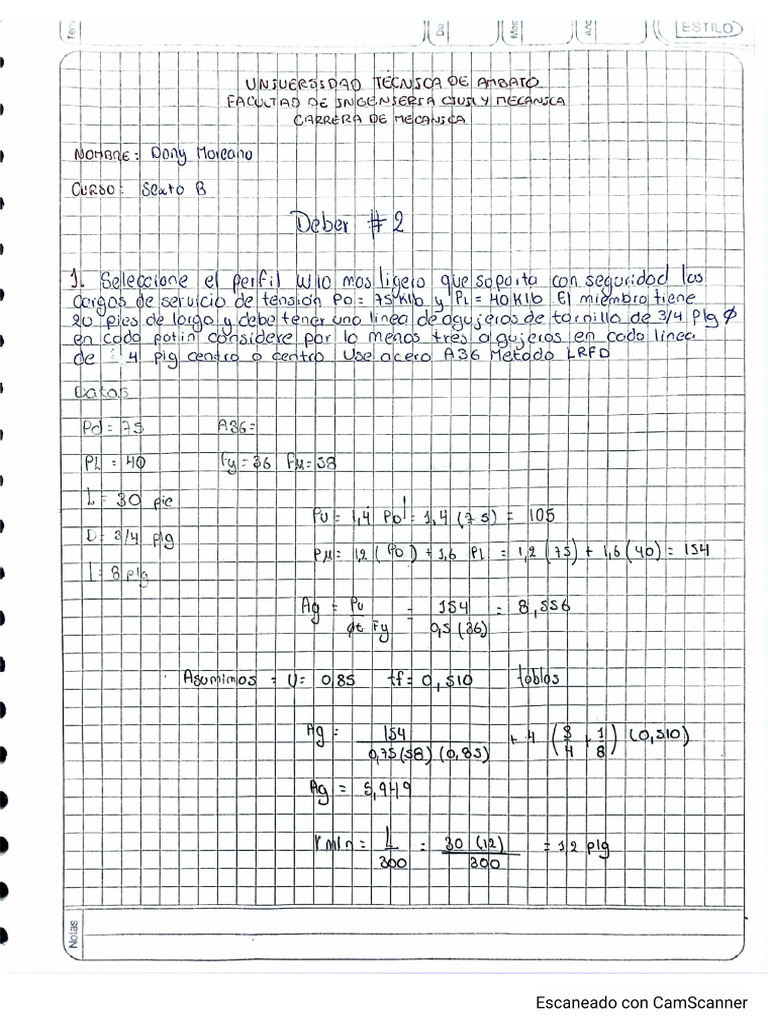 Tema
Día
Mes
Año
ESTILO
UNIVERSIDAD TÉCNICA DE AMBATO
FACULTAD DE INGENIERIA CIVIL Y MECANICA
CARRERA DE MECANICA
NOMBRE: Dany Moreano
CURSO: Sexto B
Deber #2
1. Seleccione el perfil W10 mas ligero que soporta con seguridad las
cargas de servicio de tensión PD= 75 Klb y PL = 40 Klb El miembro tiene
20 pies de largo y debe tener una linea de agujeros de tornillo de 3/4 Plg Ø
en cada patin considere por lo menos tres agujeros en cada linea
de 4 plg centro a centro Use acero A36 Metodo LRFD
Datos
Pd = 75 A36=
PL = 40 Fy = 36 Fu = 58
L = 30 pie
Pu = 1,4 PD = 1,4 (75) = 105
D= 3/4 plg
Pu= 1,2 (PD) + 1,6 PL = 1,2 (75) + 1,6 (40) = 154
l = 8 plg
Ag = Pu / Øt Fy = 154 / 0,5 (36) = 8,556
Asumimos = U = 0,85 tf = 0,510 tablas
Ag = 154 / 0,75 (58) (0,85) + 4 (3/4 + 1/8) (0,510)
Ag = 5,949
rmin = L / 300 = 30 (12) / 300 = 1,2 plg
Notas
Escaneado con CamScanner